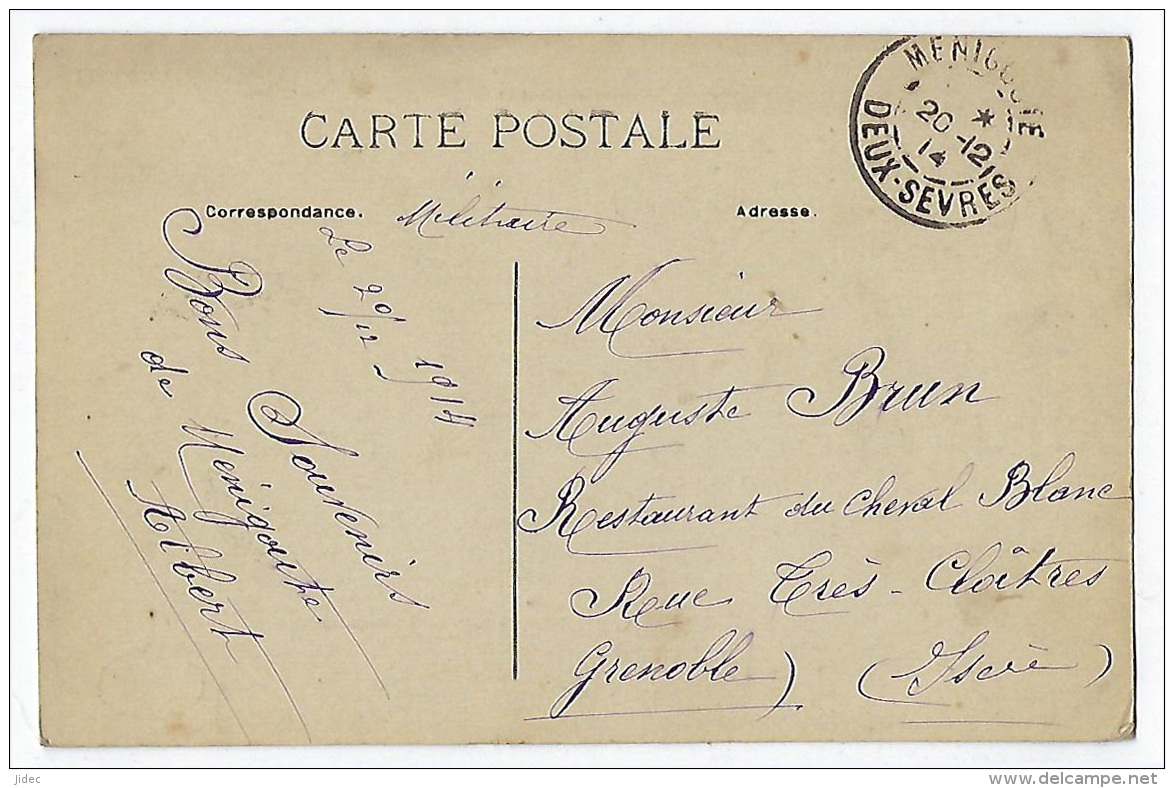 CARTE POSTALE
MENIGOUTE
* 20-12 14
DEUX-SEVRES
Correspondance.
Militaire
Adresse.
Le 20/12 1914
Bons Souvenirs
de Ménigoute
Albert
Monsieur
Auguste Brun
Restaurant du Cheval Blanc
Rue Très-Cloîtres
Grenoble) (Isère)
Jidec
www.delcampe.net